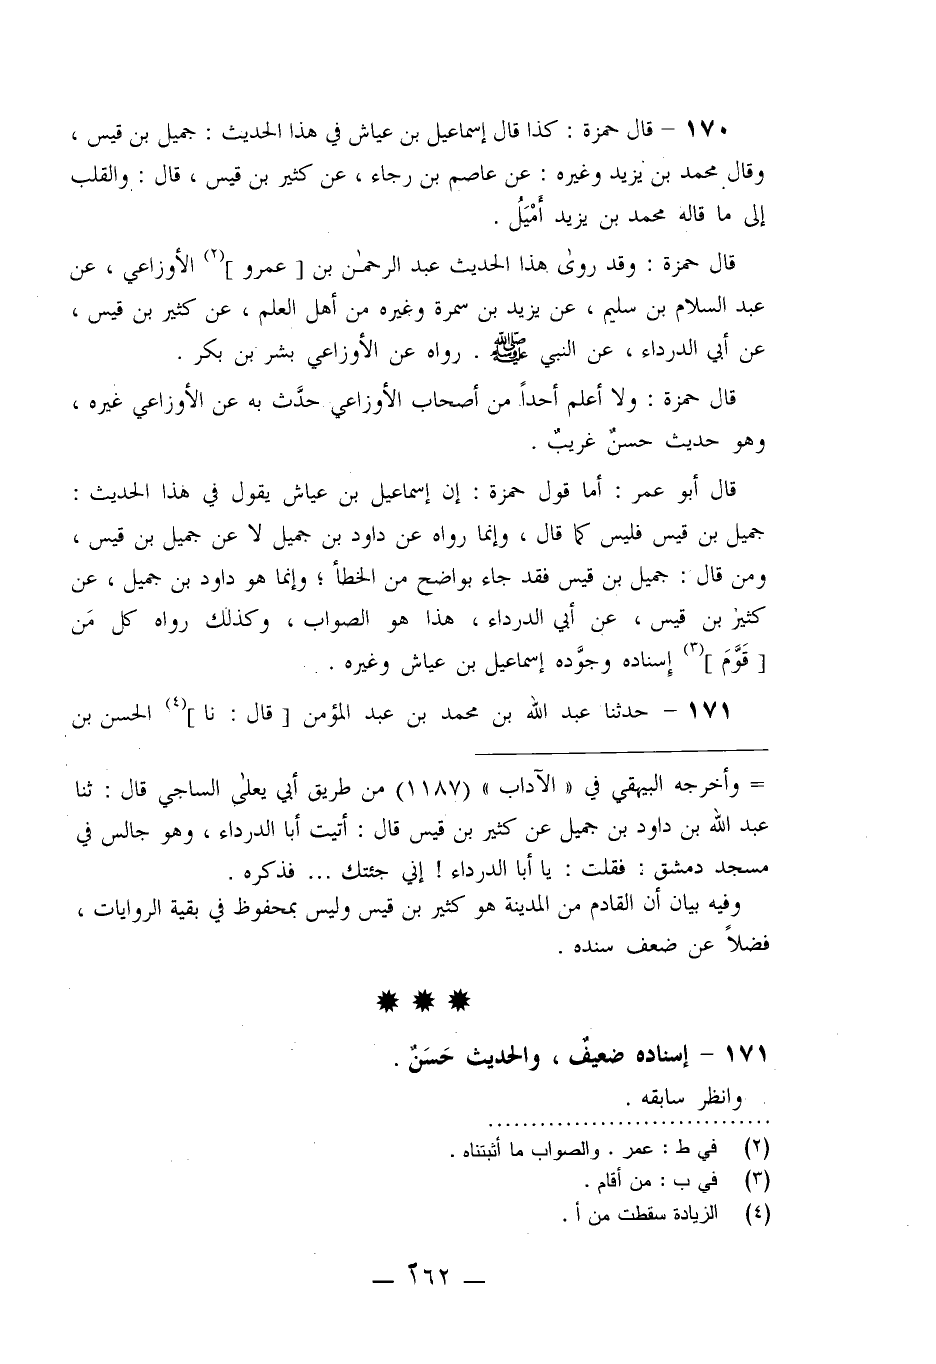 ١٧٠ – قال حمزة : كذا قال إسماعيل بن عياش في هذا الحديث : جميل بن قيس ،
وقال محمد بن يزيد وغيره : عن عاصم بن رجاء ، عن كثير بن قيس ، قال : والقلب
إلى ما قاله محمد بن يزيد أَمْيَلُ .
قال حمزة : وقد روىٰ هذا الحديث عبد الرحمٰن بن [ عمرو ](٢) الأوزاعي ، عن
عبد السلام بن سليم ، عن يزيد بن سمرة وغيره من أهل العلم ، عن كثير بن قيس ،
عن أبي الدرداء ، عن النبي ﷺ . رواه عن الأوزاعي بشر بن بكر .
قال حمزة : ولا أعلم أحداً من أصحاب الأوزاعي حدَّث به عن الأوزاعي غيره ،
وهو حديث حسنٌ غريبٌ .
قال أبو عمر : أما قول حمزة : إن إسماعيل بن عياش يقول في هذا الحديث :
جميل بن قيس فليس كما قال ، وإنما رواه عن داود بن جميل لا عن جميل بن قيس ،
ومن قال : جميل بن قيس فقد جاء بواضح من الخطأ ؛ وإنما هو داود بن جميل ، عن
كثير بن قيس ، عن أبي الدرداء ، هذا هو الصواب ، وكذلك رواه كل مَن
[ قَوَّمَ ](٣) إسناده وجوَّده إسماعيل بن عياش وغيره .
١٧١ – حدثنا عبد الله بن محمد بن عبد المؤمن [ قال : نا ](٤) الحسن بن
= وأخرجه البيهقي في « الآداب » (١١٨٧) من طريق أبي يعلىٰ الساجي قال : ثنا
عبد الله بن داود بن جميل عن كثير بن قيس قال : أتيت أبا الدرداء ، وهو جالس في
مسجد دمشق : فقلت : يا أبا الدرداء ! إني جئتك ... فذكره .
وفيه بيان أن القادم من المدينة هو كثير بن قيس وليس بمحفوظ في بقية الروايات ،
فضلاً عن ضعف سنده .
١٧١ – إسناده ضعيفٌ ، والحديث حَسَنٌ .
وانظر سابقه .
(٢) في ط : عمر . والصواب ما أثبتناه .
(٣) في ب : من أقام .
(٤) الزيادة سقطت من أ .
– ٢٦٢ –